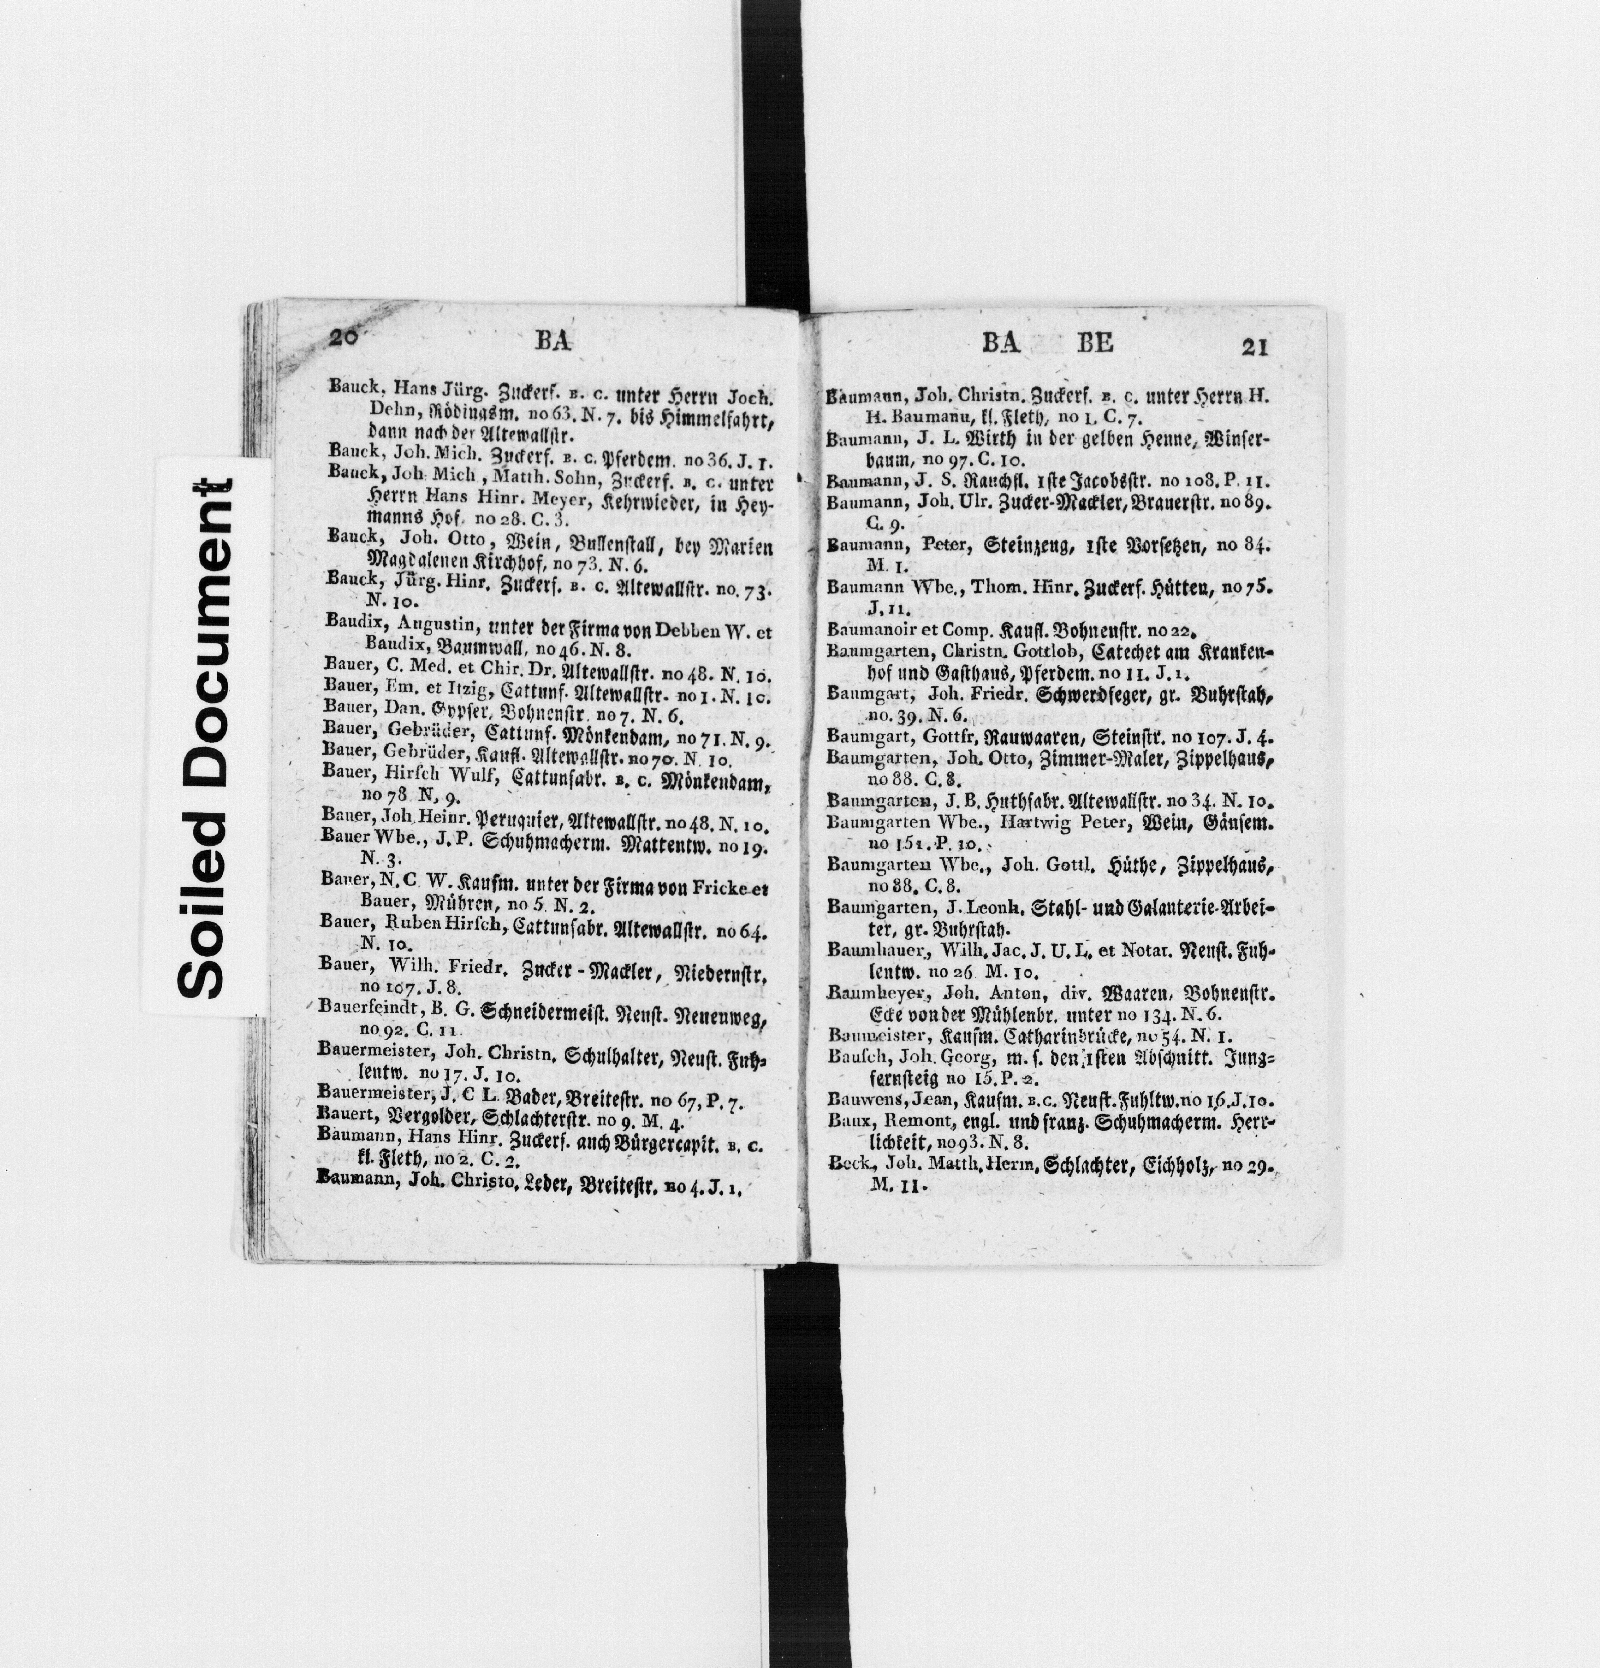 Soiled Document
20
BA
Bauck, Hans Jürg. Zuckerf. B. C. unter Herrn Joch.
Dehn, Rödingsm. no 63. N. 7. bis Himmelfahrt,
dann nach der Altewallstr.
Bauck, Joh. Mich. Zuckerf. B. C. Pferdem. no 36. J. 1.
Bauck, Joh Mich, Matth. Sohn, Zuckerf. B. C. unter
Herrn Hans Hinr. Meyer, Kehrwieder, in Hey-
manns Hof, no 28. C. 3.
Bauck, Joh. Otto, Wein, Bullenstall, bey Marien
Magdalenen Kirchhof, no 73. N. 6.
Bauck, Jürg. Hinr. Zuckerf. B. C. Altewallstr. no. 73.
N. 10.
Baudix, Augustin, unter der Firma von Debben W. et
Baudix, Baumwall, no 46. N. 8.
Bauer, C. Med. et Chir. Dr. Altewallstr. no 48. N. 10.
Bauer, Em. et Itzig, Cattunf. Altewallstr. no 1. N. 10.
Bauer, Dan. Gypser, Bohnenstr. no 7. N. 6.
Bauer, Gebrüder, Cattunf. Mönkendam, no 71. N. 9.
Bauer, Gebrüder, Kaufl. Altewallstr. no 70. N. 10.
Bauer, Hirsch Wulf, Cattunfabr. B. C. Mönkendam,
no 78 N. 9.
Bauer, Joh Heinr. Peruquier, Altewallstr. no 48. N. 10.
Bauer Wbe., J. P. Schuhmacherm. Mattentw. no 19.
N. 3.
Bauer, N. C W. Kaufm. unter der Firma von Fricke et
Bauer, Mühren, no 5. N. 2.
Bauer, Ruben Hirsch, Cattunfabr. Altewallstr. no 64.
N. 10.
Bauer, Wilh. Friedr. Zucker-Mackler, Niedernstr.
no 107. J. 8.
Bauerfeindt, B. G. Schneidermeist. Neust. Neuenweg,
no 92. C. 11.
Bauermeister, Joh. Christn. Schulhalter, Neust. Fuh-
lentw. no 17. J. 10.
Bauermeister, J. C L. Bader, Breitestr. no 67, P. 7.
Bauert, Vergolder, Schlachterstr. no 9. M. 4.
Baumann, Hans Hinr. Zuckerf. auch Bürgercapit. B. C.
kl. Fleth, no 2. C. 2.
Baumann, Joh. Christo. Leder, Breitestr. no 4. J. 1.
BA BE
21
Baumann, Joh. Christn. Zuckerf. B. C. unter Herrn H.
H. Baumann, kl. Fleth, no 1. C. 7.
Baumann, J. L. Wirth in der gelben Henne, Winser-
baum, no 97. C. 10.
Baumann, J. S. Rauchfl. 1ste Jacobsstr. no 108. P. 11.
Baumann, Joh. Ulr. Zucker-Mackler, Brauerstr. no 89.
C. 9.
Baumann, Peter, Steinzeug, 1ste Vorsetzen, no 84.
M. 1.
Baumann Wbe., Thom. Hinr. Zuckerf. Hütten, no 75.
J. 11.
Baumanoir et Comp. Kaufl. Bohnenstr. no 22.
Baumgarten, Christn. Gottlob, Catechet am Kranken-
hof und Gasthaus, Pferdem. no 11. J. 1.
Baumgart, Joh. Friedr. Schwerdfeger, gr. Buhrstah,
no. 39. N. 6.
Baumgart, Gottfr. Rauwaaren, Steinstr. no 107. J. 4.
Baumgarten, Joh. Otto, Zimmer-Maler, Zippelhaus,
no 88. C. 8.
Baumgarten, J. B. Huthfabr. Altewallstr. no 34. N. 10.
Baumgarten Wbe., Hartwig Peter, Wein, Gänsem.
no 151. P. 10.
Baumgarten Wbe., Joh. Gottl. Hüthe, Zippelhaus,
no 88. C. 8.
Baumgarten, J. Leonh. Stahl- und Galanterie-Arbei-
ter, gr. Buhrstah.
Baumhauer, Wilh. Jac. J. U. L. et Notar. Neust. Fuh-
lentw. no 26 M. 10.
Baumheyer, Joh. Anton, div. Waaren, Bohnenstr.
Ecke von der Mühlenbr. unter no 134. N. 6.
Baumeister, Kaufm. Catharinbrücke, no 54. N. 1.
Bausch, Joh. Georg, m. s. den 1sten Abschnitt. Jung-
fernsteig no 15. P. 2.
Bauwens, Jean, Kaufm. B. C. Neust. Fuhltw. no 16. J. 10.
Baux, Remont, engl. und franz. Schuhmacherm. Herr-
lichkeit, no 93. N. 8.
Beck, Joh. Matth. Herm. Schlachter, Eichholz, no 29.
M. 11.